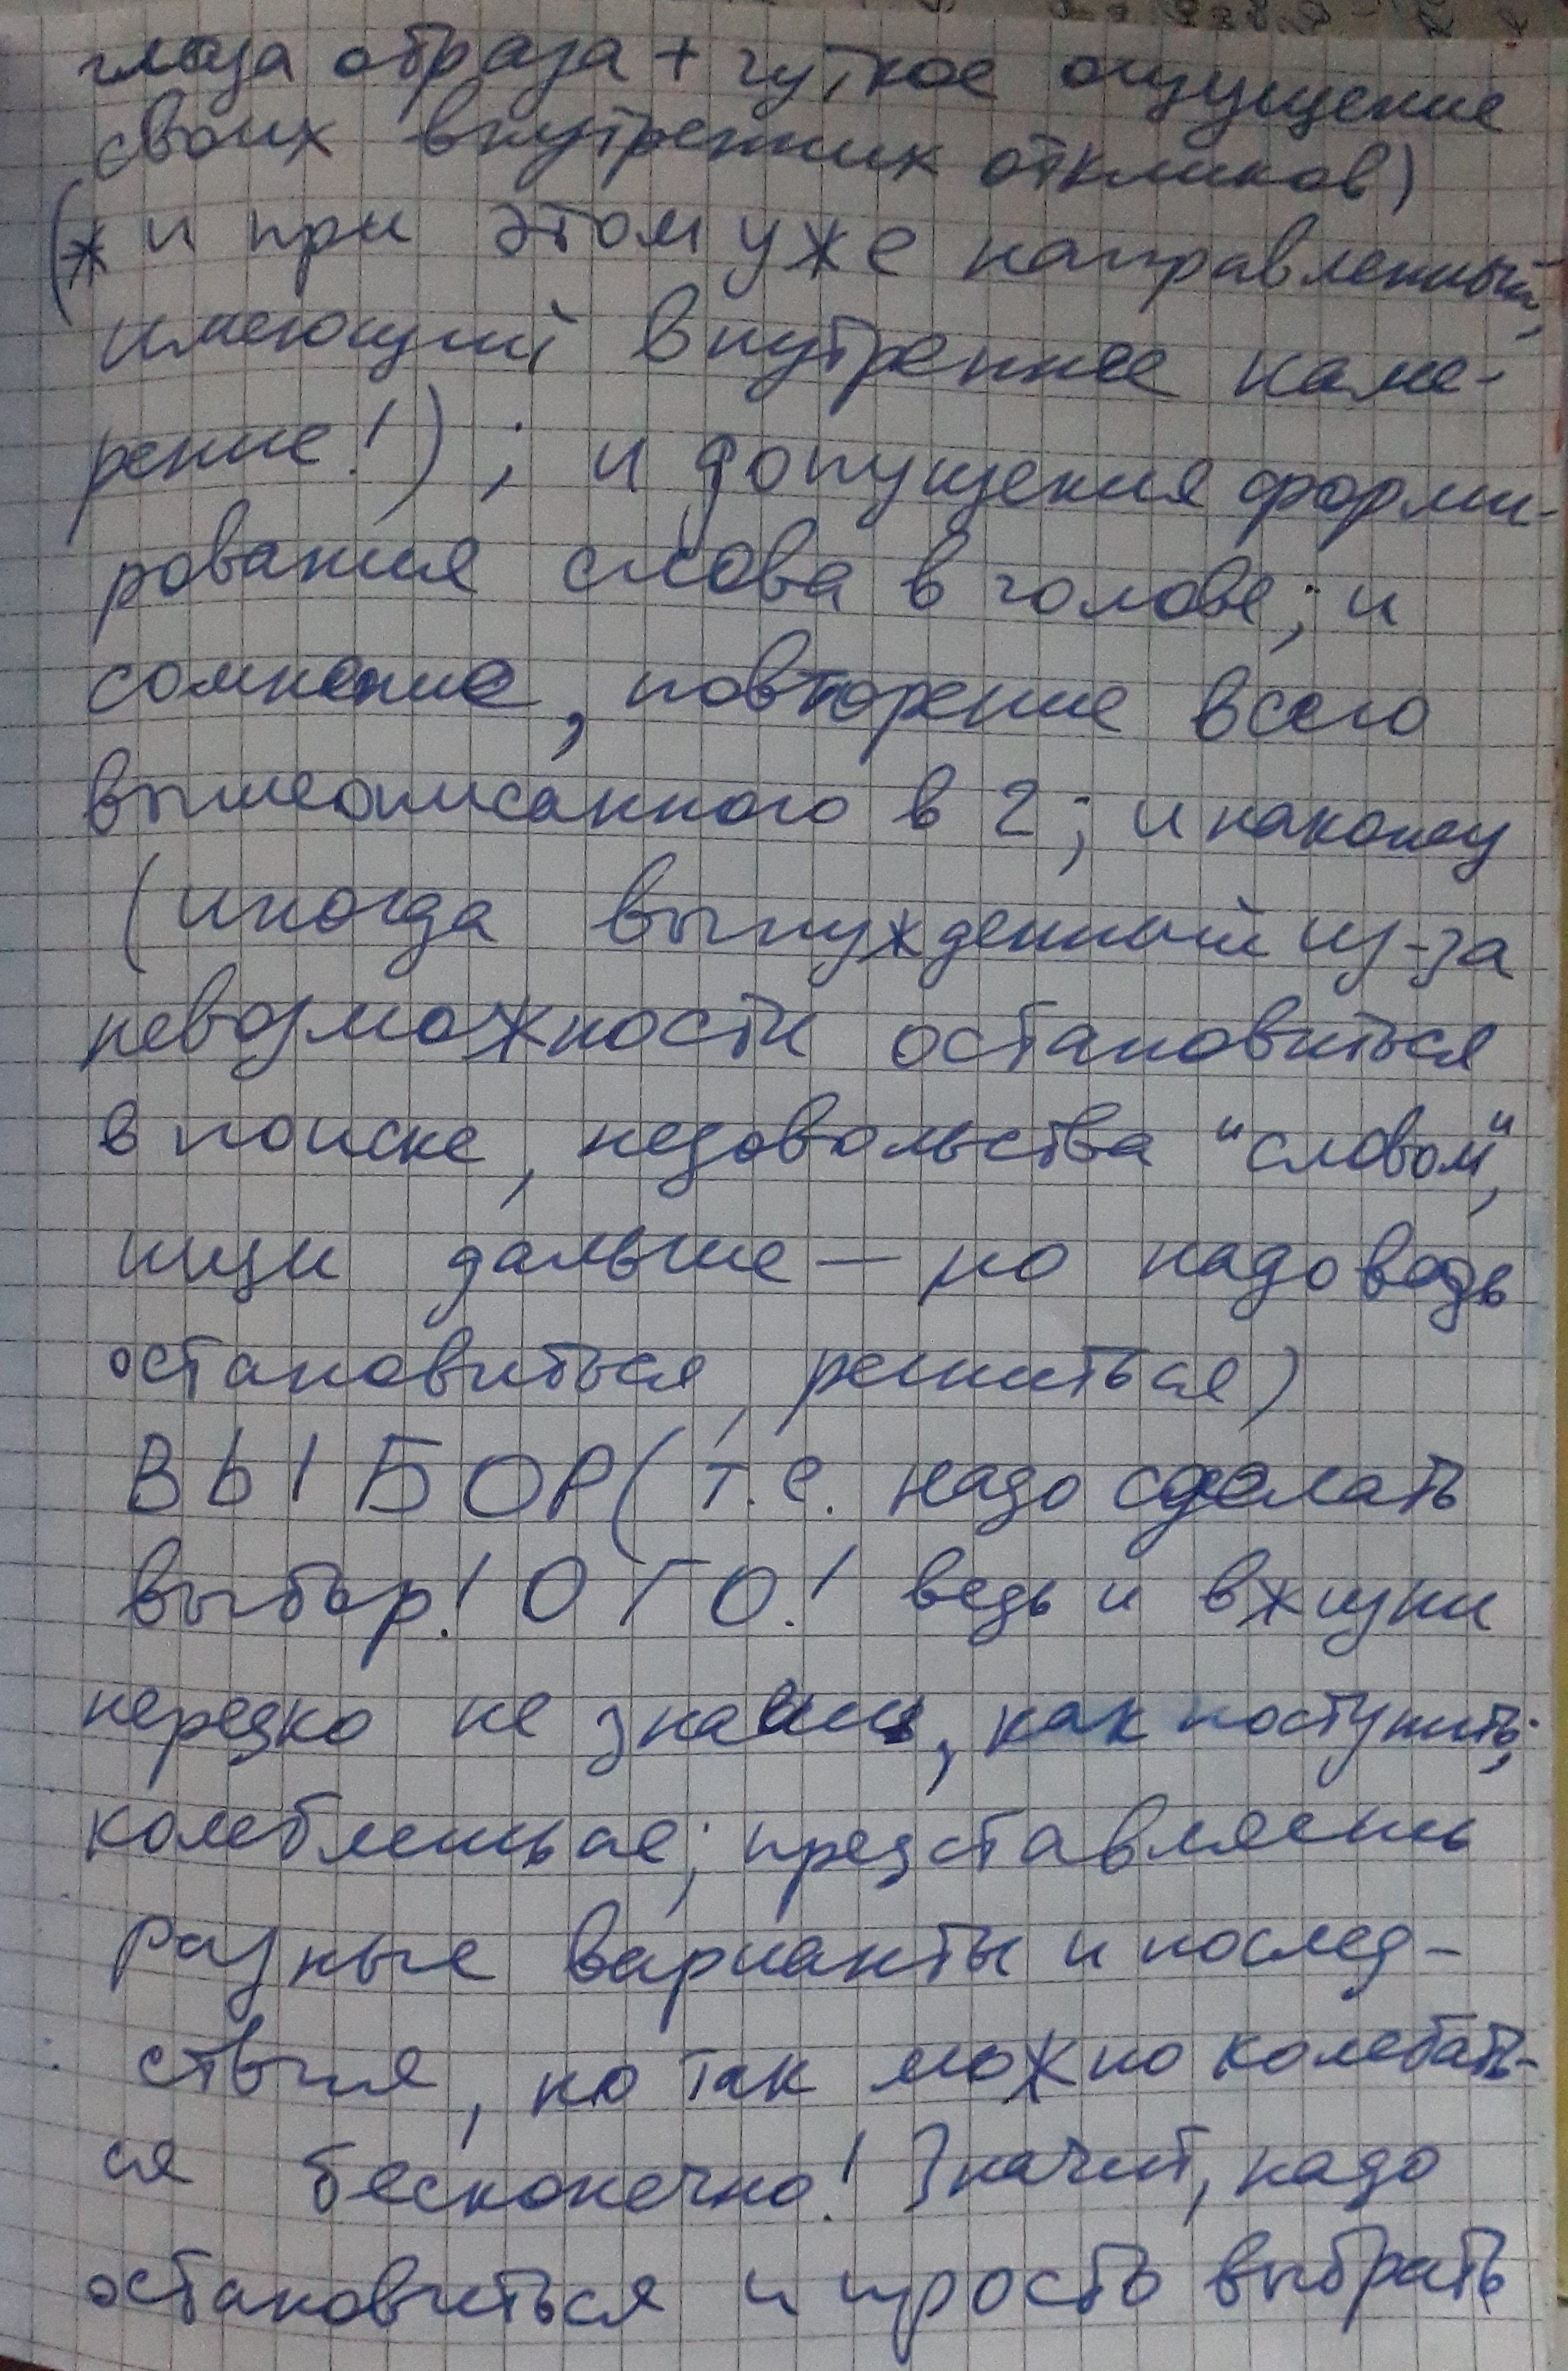 глаза образа + чуткое ощущение
своих внутренних откликов)
(* и при этом уже направленный,
имеющий внутреннее наме-
рение!); и допущения форми-
рования слова в голове; и
сомнение, повторение всего
вышеописанного в 2; и наконец
(иногда вынужденный из-за
невозможности остановиться
в поиске, недовольства "словом",
ищи дальше — но надо ведь
остановиться, решиться)
ВЫБОР (т.е. надо сделать
выбор! ОГО! ведь и в жизни
нередко не знаешь, как поступить;
колеблешься; представляешь
разные варианты и послед-
ствия, но так можно колебать-
ся бесконечно! Значит, надо
остановиться и просто выбрать